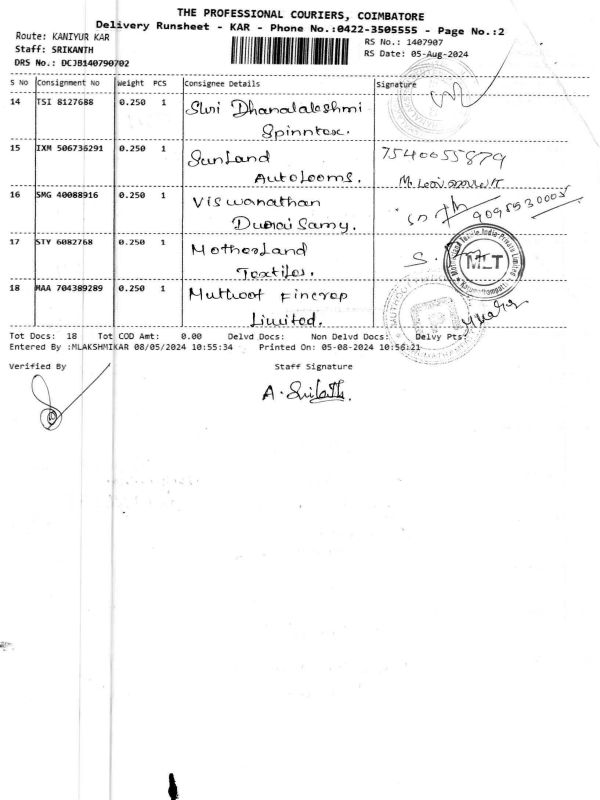 THE PROFESSIONAL COURIERS, COIMBATORE
Delivery Runsheet - KAR - Phone No.:0422-3505555 - Page No.:2
Route: KANIYUR KAR
RS No.: 1407907
Staff: SRIKANTH
RS Date: 05-Aug-2024
DRS No.: DCJB140790702
S No Consignment No Weight PCS Consignee Details Signature
14 TSI 8127688 0.250 1 Shri Dhanalakshmi
Spinntex.
15 IXM 506736291 0.250 1 SunLand 7540055879
AutoLooms.
16 SMG 40088916 0.250 1 Viswanathan 9095930005
Duraisamy.
17 STY 6082768 0.250 1 MotherLand
Textiles.
MLT
18 MAA 704389289 0.250 1 Muthoot Fincrop
Limited.
Tot Docs: 18 Tot COD Amt: 0.00 Delvd Docs: Non Delvd Docs: Delvy Pts:
Entered By :MLAKSHMIKAR 08/05/2024 10:55:34 Printed On: 05-08-2024 10:56:21
Verified By Staff Signature
A. Srikath.